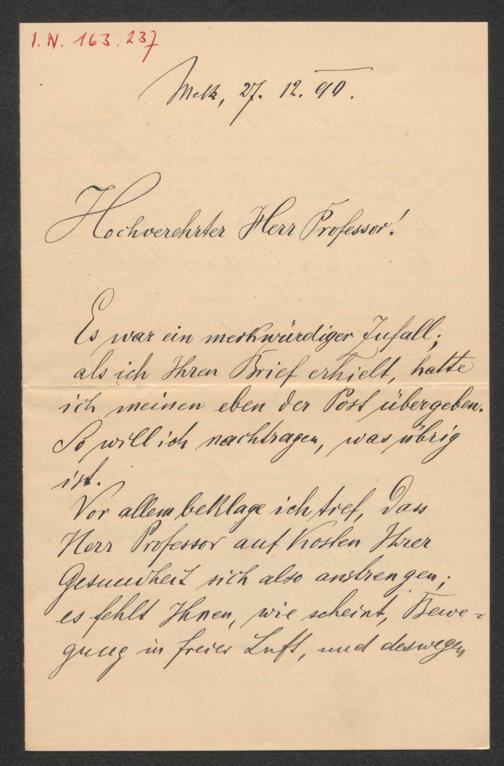 I. N. 163.237
Melk, 27. 12. 90.
Hochverehrter Herr Professor!
Es war ein merkwürdiger Zufall;
als ich Ihren Brief erhielt, hatte
ich meinen eben der Post übergeben.
So will ich nachtragen, was übrig
ist.
Vor allem beklage ich tief, dass
Herr Professor auf Kosten Ihrer
Gesundheit sich also anstrengen;
es fehlt Ihnen, wie scheint, Bewe-
gung in freier Luft, und deswegen